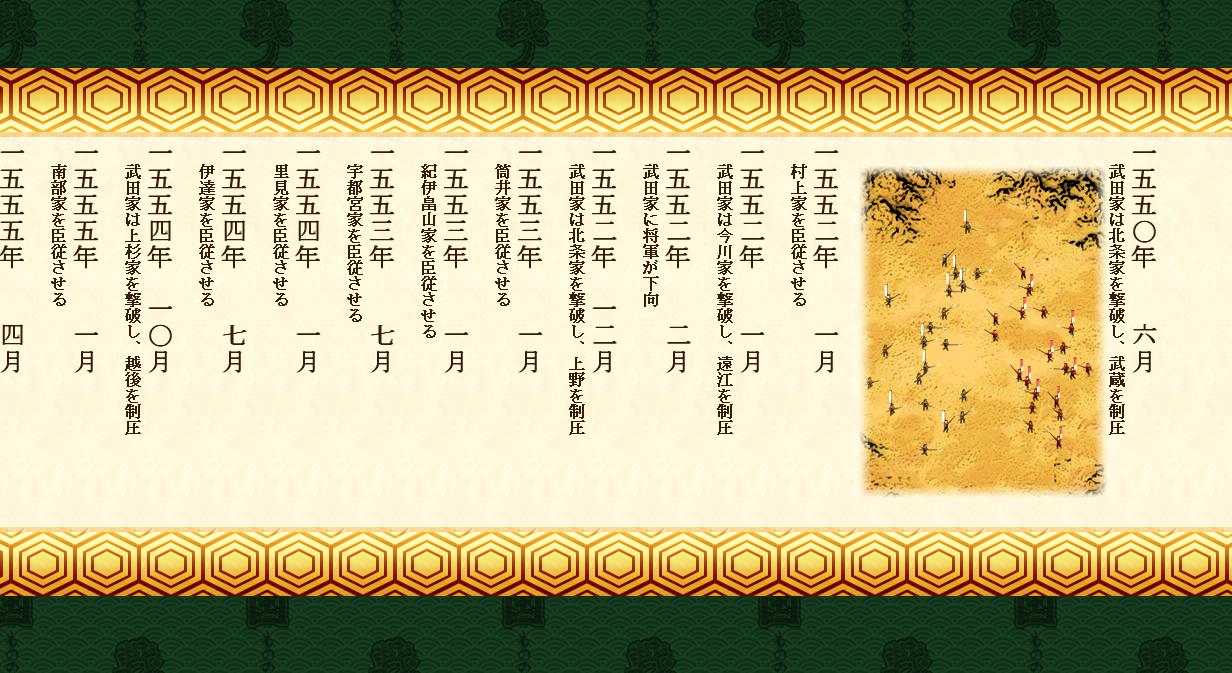 一五五〇年　六月
武田家は北条家を撃破し、武蔵を制圧
一五五二年　一月
村上家を臣従させる
一五五二年　一月
武田家は今川家を撃破し、遠江を制圧
一五五二年　二月
武田家に将軍が下向
一五五二年　一二月
武田家は北条家を撃破し、上野を制圧
一五五三年　一月
筒井家を臣従させる
一五五三年　一月
紀伊畠山家を臣従させる
一五五三年　七月
宇都宮家を臣従させる
一五五四年　一月
里見家を臣従させる
一五五四年　七月
伊達家を臣従させる
一五五四年　一〇月
武田家は上杉家を撃破し、越後を制圧
一五五五年　一月
南部家を臣従させる
一五五五年　四月